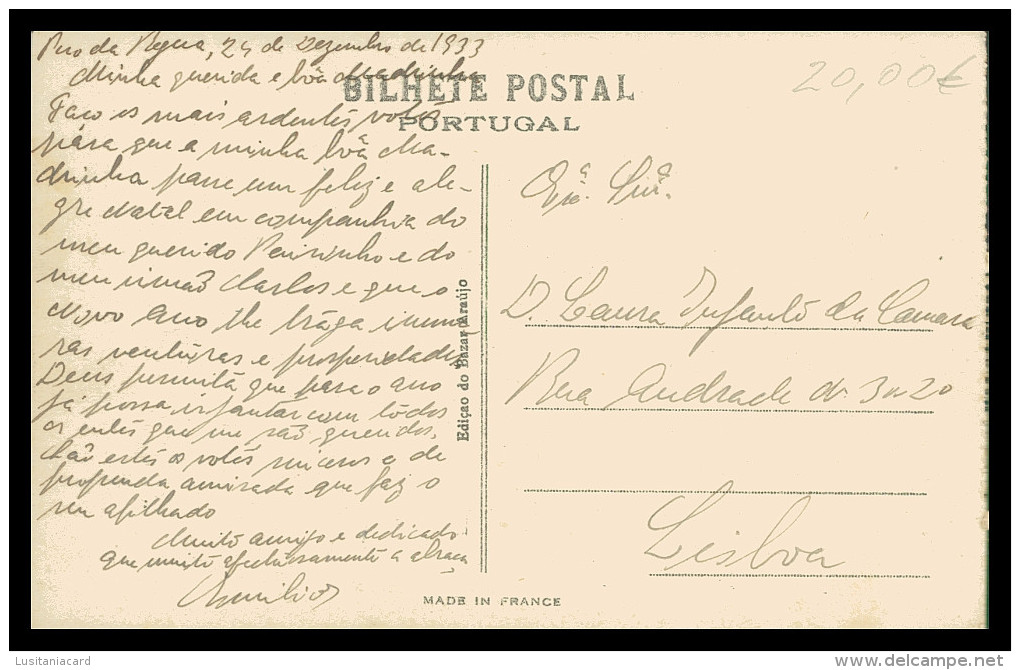 da Regua, 24 de Dezembro de 1933
Minha querida e bôa Madrinha
Faço os mais ardentes votos
para que a minha bôa Ma-
drinha passe um feliz e ale-
gre Natal em companhia do
meu querido Paisinho e do
meu irmaõ Carlos e que o
Novo Ano lhe traga inume-
ras venturas e prosperidades
Deus permita que para o ano
já possa com todos
os entes que me saõ queridos.
Saõ estes os votos sinceros e de
profunda amisade que faz o
seu afilhado
Muito amigo e dedicado
que muito afectuosamente a abraça
BILHETE POSTAL
PORTUGAL
20,00€
Edição do Bazar Araújo
D. Laura Infante da Camara
Rua Andrade
Lisboa
MADE IN FRANCE
Lusitaniacard
http://www.delcampe.net